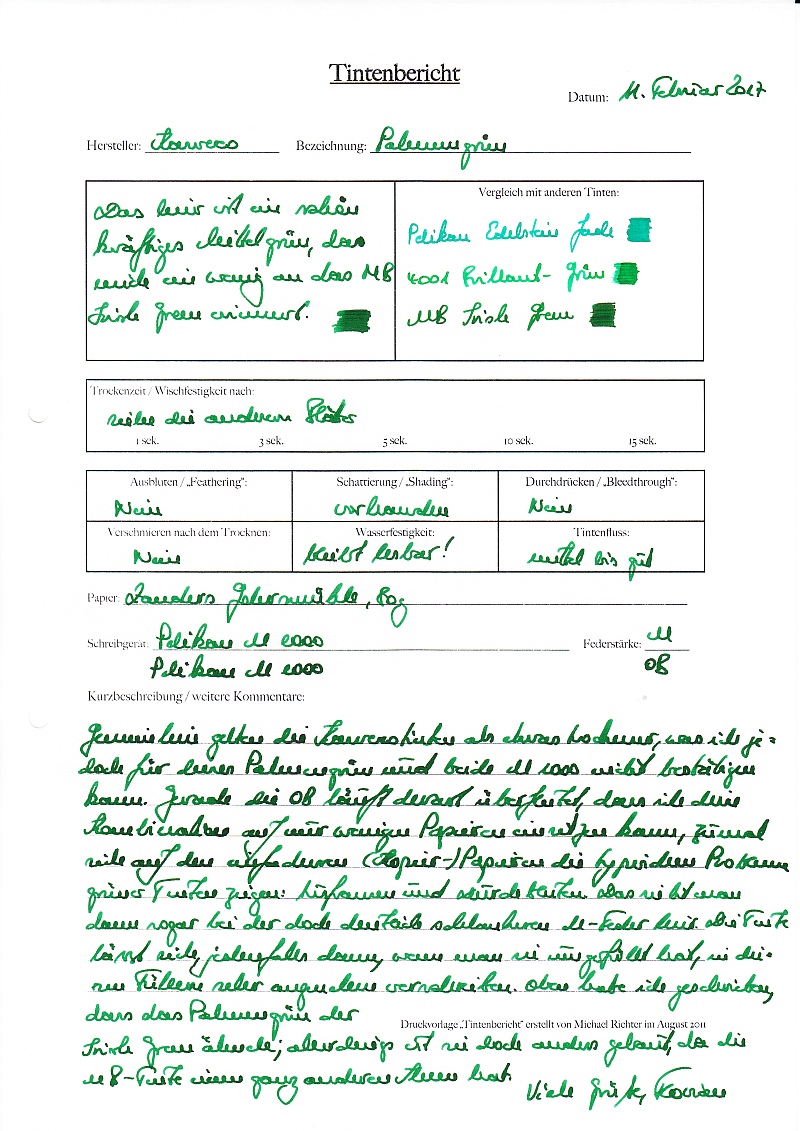 Tintenbericht
Datum: 11. Februar 2017
Hersteller: Kaweco Bezeichnung: Palmengrün
Das hier ist ein schön
kräftiges Mittelgrün, das
mich ein wenig an das MB
Irish Green erinnert.
Vergleich mit anderen Tinten:
Pelikan Edelstein Jade
4001 Brillant-Grün
MB Irish Green
Trockenzeit / Wischfestigkeit nach:
siehe die anderen Blätter
1 sek. 3 sek. 5 sek. 10 sek. 15 sek.
Ausbluten / „Feathering“: Schattierung / „Shading“: Durchdrücken / „Bleedthrough“:
Nein vorhanden Nein
Verschmieren nach dem Trocknen: Wasserfestigkeit: Tintenfluss:
Nein bleibt lesbar! mittel bis gut
Papier: Zanders Gohrsmühle, 80g
Schreibgerät: Pelikan M 1000 Federstärke: M
Pelikan M 1000 OB
Kurzbeschreibung / weitere Kommentare:
Gemeinhin gelten die Kawecotinten als etwas trockener, was ich je-
doch für dieses Palmengrün und beide M 1000 nicht bestätigen
kann. Gerade die OB läuft derart überflutet, dass ich diese
Kombination auf nur wenigen Papieren einsetzen kann, zumal
sich auf den einfacheren (Kopier-)Papieren die typischen Probleme
grüner Tinten zeigen: und Das sieht man
dann sogar bei der doch deutlich schlankeren M-Feder hier. Die Tinte
lässt sich, jedenfalls dann, wenn man sie eingefüllt hat, in die-
sen Füllern sehr angenehm verschreiben. Oben habe ich geschrieben,
dass das Palmengrün der
Druckvorlage „Tintenbericht“ erstellt von Michael Richter im August 2011
Irish Green ähnele; allerdings ist sie doch anders gebaut, da die
MB-Tinte einen ganz anderen hat.
Viele Grüße,